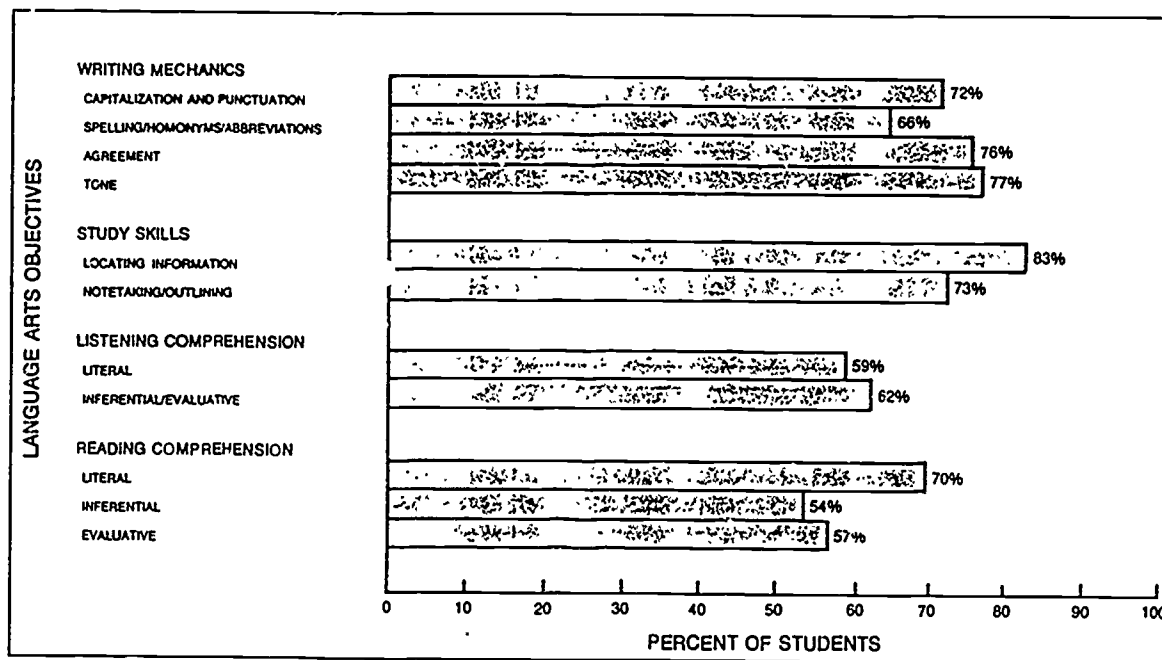 LANGUAGE ARTS OBJECTIVES
WRITING MECHANICS
CAPITALIZATION AND PUNCTUATION 72%
SPELLING/HOMONYMS/ABBREVIATIONS 66%
AGREEMENT 76%
TONE 77%
STUDY SKILLS
LOCATING INFORMATION 83%
NOTETAKING/OUTLINING 73%
LISTENING COMPREHENSION
LITERAL 59%
INFERENTIAL/EVALUATIVE 62%
READING COMPREHENSION
LITERAL 70%
INFERENTIAL 54%
EVALUATIVE 57%
0 10 20 30 40 50 60 70 80 90 100
PERCENT OF STUDENTS